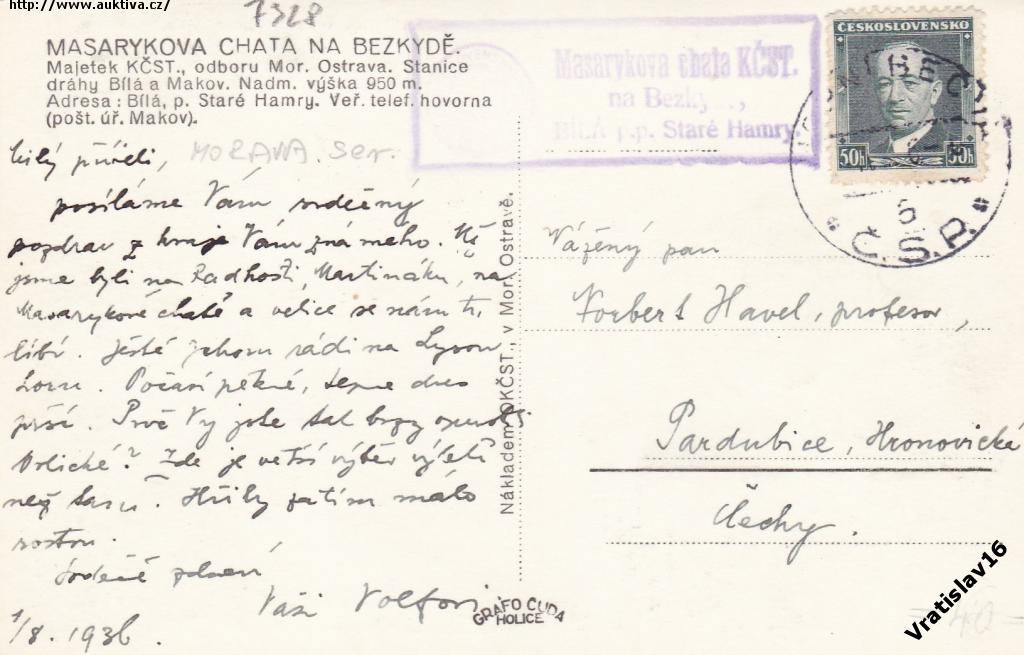 http://www.auktiva.cz/
7328
MASARYKOVA CHATA NA BEZKYDĚ.
Majetek KČST., odboru Mor. Ostrava. Stanice
dráhy Bílá a Makov. Nadm. výška 950 m.
Adresa: Bílá, p. Staré Hamry. Veř. telef. hovorna
(pošt. úř. Makov).
Masarykova chata KČST.
na Bezky
BÍLÁ p.p. Staré Hamry.
ČESKOSLOVENSKO
50h 50h
6
Č.S.P.
MORAVA. Sev.
Milý příteli,
posíláme Vám srdečný
pozdrav z kraje Vám známého. Už
jsme byli na Radhošti, Martiňáku, na
Masarykově chatě a velice se nám tu
líbí. Ještě
rádi na Lysou
horu. Počasí pěkné, dnes
prší. Proč Vy jste tak brzy
Orlické? Zde je větší výběr výletů
než tam. Hřiby zatím málo
rostou.
Srdečně zdraví
Vaši Volfovi
1/8. 1936.
Nákladem OKČST., v Mor. Ostravě.
Vážený pan
Norbert Havel, profesor,
Pardubice, Hronovická
Čechy.
GRAFO ČUDA
HOLICE
40
Vratislav16